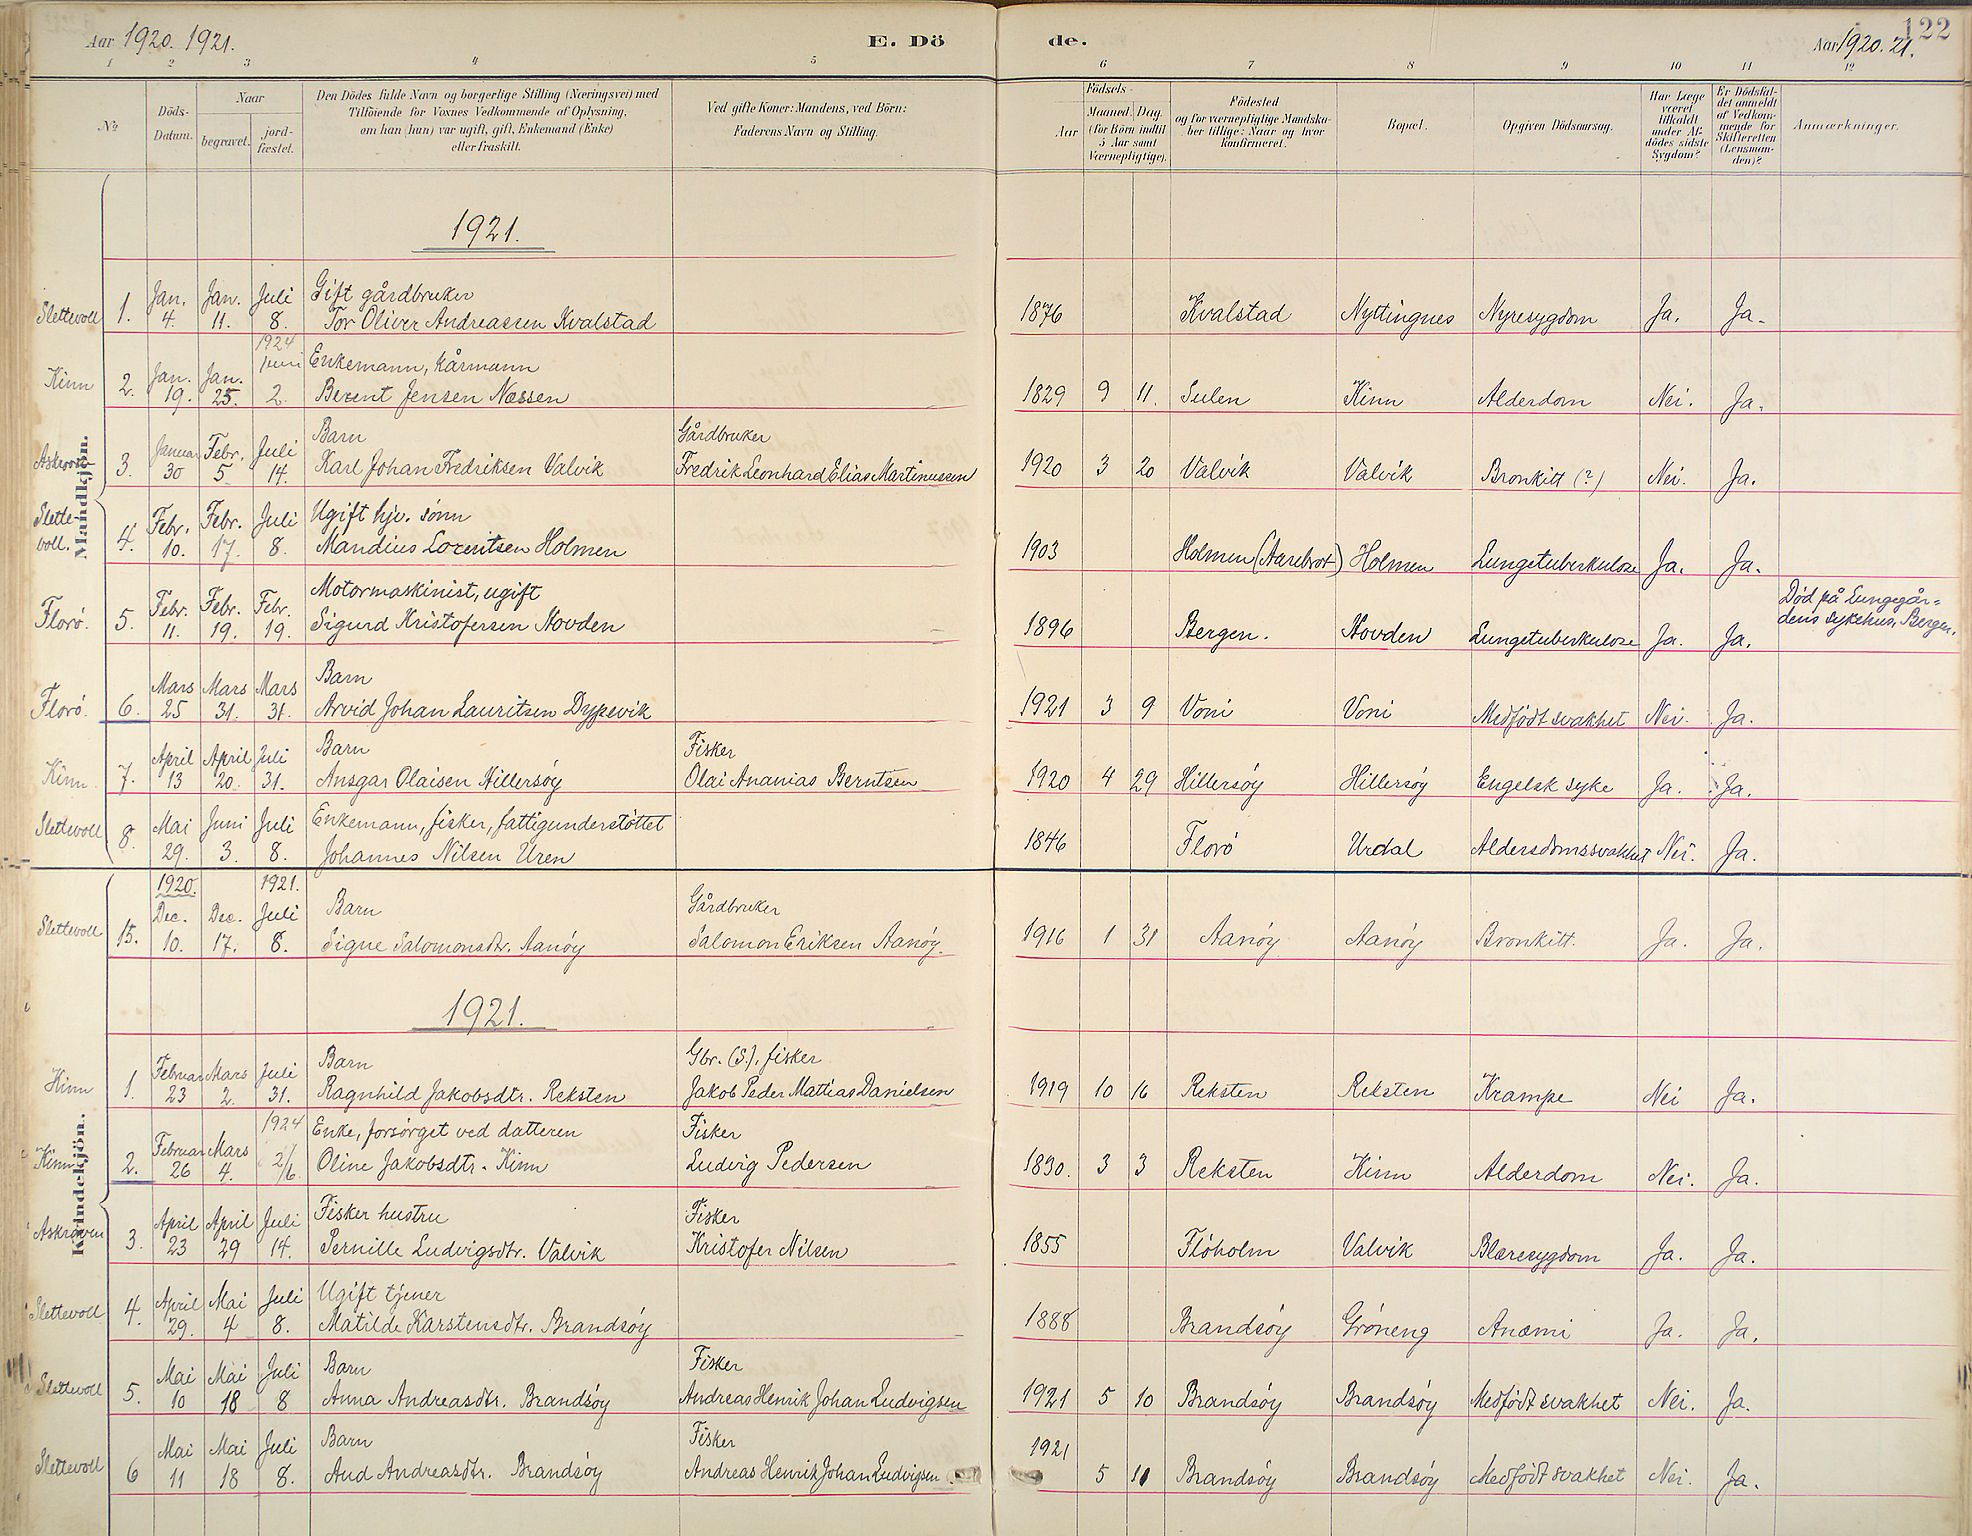 Aar 1920. 1921. E. Dö de. Aar 1920. 21. 122
1 2 3 4 5 6 7 8 9 10 11 12
No
Döds-
Datum.
Naar
begravet.
jord-
fæstet.
Den Dödes fulde Navn og borgerlige Stilling (Næringsvei) med
Tilföiende for Voxnes Vedkommende af Oplysning,
om han (hun) var ugift, gift, Enkemand (Enke)
eller fraskilt.
Ved gifte Koner: Mandens, ved Börn:
Faderens Navn og Stilling.
Födsels-
Aar
Maaned. Dag.
(for Börn indtil
5 Aar samt
Værnepligtige).
Födested
og for værnepligtige Mandska-
ber tillige: Naar og hvor
konfirmeret.
Bopæl.
Opgiven Dödsaarsag.
Har Læge
været
tilkaldt
under Af-
dödes sidste
Sygdom?
Er Dödsfal-
det anmeldt
af Vedkom-
mende for
Skifteretten
(Lensman-
den)?
Anmærkninger.
Mandkjön.
1921.
Jan. Jan. Juli Gift gårdbruker
Slettevoll 1. 4. 11. 8. Tor Oliver Andreassen Kvalstad 1876 Kvalstad Nyttingnes Nyresygdom Ja. Ja.
1924
Jan. Jan. juni Enkemann, kårmann
Kinn 2. 19. 25. 2. Berent Jensen Næssen 1829 9 11. Sulen Kinn Alderdom Nei. Ja.
Januar Febr. Juli Barn Gårdbruker
Askroven 3. 30 5 14. Karl Johan Fredriksen Valvik Fredrik Leonhard Elias Martinussen 1920 3 20 Valvik Valvik Bronkitt (?) Nei. Ja.
Slette- Febr. Febr. Juli Ugift hjv. sønn
voll. 4. 10. 17. 8. Mandius Lorentsen Holmen 1903 Holmen (Aarebrot) Holmen Lungetuberkulose Ja. Ja.
Febr. Febr. Febr. Motormaskinist, ugift Død på Lungegår=
Florø. 5. 11. 19. 19. Sigurd Kristofersen Hovden 1896 Bergen. Hovden Lungetuberkulose Ja. Ja. dens sykehus, Bergen.
Mars Mars Mars Barn
Florø. 6. 25 31. 31. Arvid Johan Lauritsen Dypevik 1921 3 9 Voni Voni Medfødt svakhet Nei. Ja.
April April Juli Barn Fisker
Kinn 7. 13 20. 31. Ansgar Olaisen Hillersøy Olai Ananias Berntsen 1920 4 29 Hillersøy Hillersøy Engelsk syke Ja. Ja.
Mai Juni Juli Enkemann, fisker, fattigunderstøttet
Slettevoll 8. 29. 3. 8. Johannes Nilsen Uren 1846 Florø Urdal Aldersdomssvakhet Nei. Ja.
Kvindekjön.
1920. 1921.
Dec. Dec. Juli Barn Gårdbruker
Slettevoll 15. 10. 17. 8. Signe Salomonsdtr. Aanøy Salomon Eriksen Aanøy. 1916 1 31 Aanøy Aanøy Bronkitt. Ja. Ja.
1921.
Februar Mars Juli Barn Gbr. (S.), fisker
Kinn 1. 23 2. 31. Ragnhild Jakobsdtr. Reksten Jakob Peder Mathias Danielsen 1919 10 16 Reksten Reksten Krampe Nei Ja.
1924
Februar Mars Enke, forsørget ved datteren Fisker
Kinn 2. 26 4. 2/6 Oline Jakobsdtr. Kinn Ludvig Pedersen 1830. 3 3 Reksten Kinn Alderdom Nei. Ja.
April April Juli Fisker hustru Fisker
Askroven 3. 23 29 14. Pernille Ludvigsdtr. Valvik Kristofer Nilsen 1855 Fløholm Valvik Blæresygdom Ja. Ja.
April Mai Juli Ugift tjener
Slettevoll 4. 29. 4 8. Matilde Karstensdtr. Brandsøy 1888 Brandsøy Grøneng Anæmi Ja. Ja.
Mai Mai Juli Barn Fisker
Slettevoll 5. 10 18 8 Anna Andreasdtr. Brandsøy Andreas Henrik Johan Ludvigsen 1921 5 10 Brandsøy Brandsøy Medfødt svakhet Nei. Ja.
Mai Mai Juli Barn Fisker 1921
Slettevoll 6 11 18 8. Aud Andreasdtr. Brandsøy Andreas Henrik Johan Ludvigsen 5 11 Brandsøy Brandsøy Medfødt svakhet Nei. Ja.